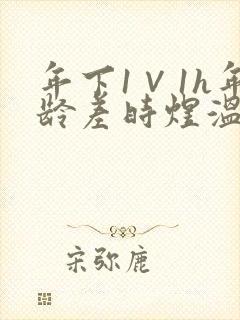 年下1V1h年
龄差時煜溫
宋弥鹿